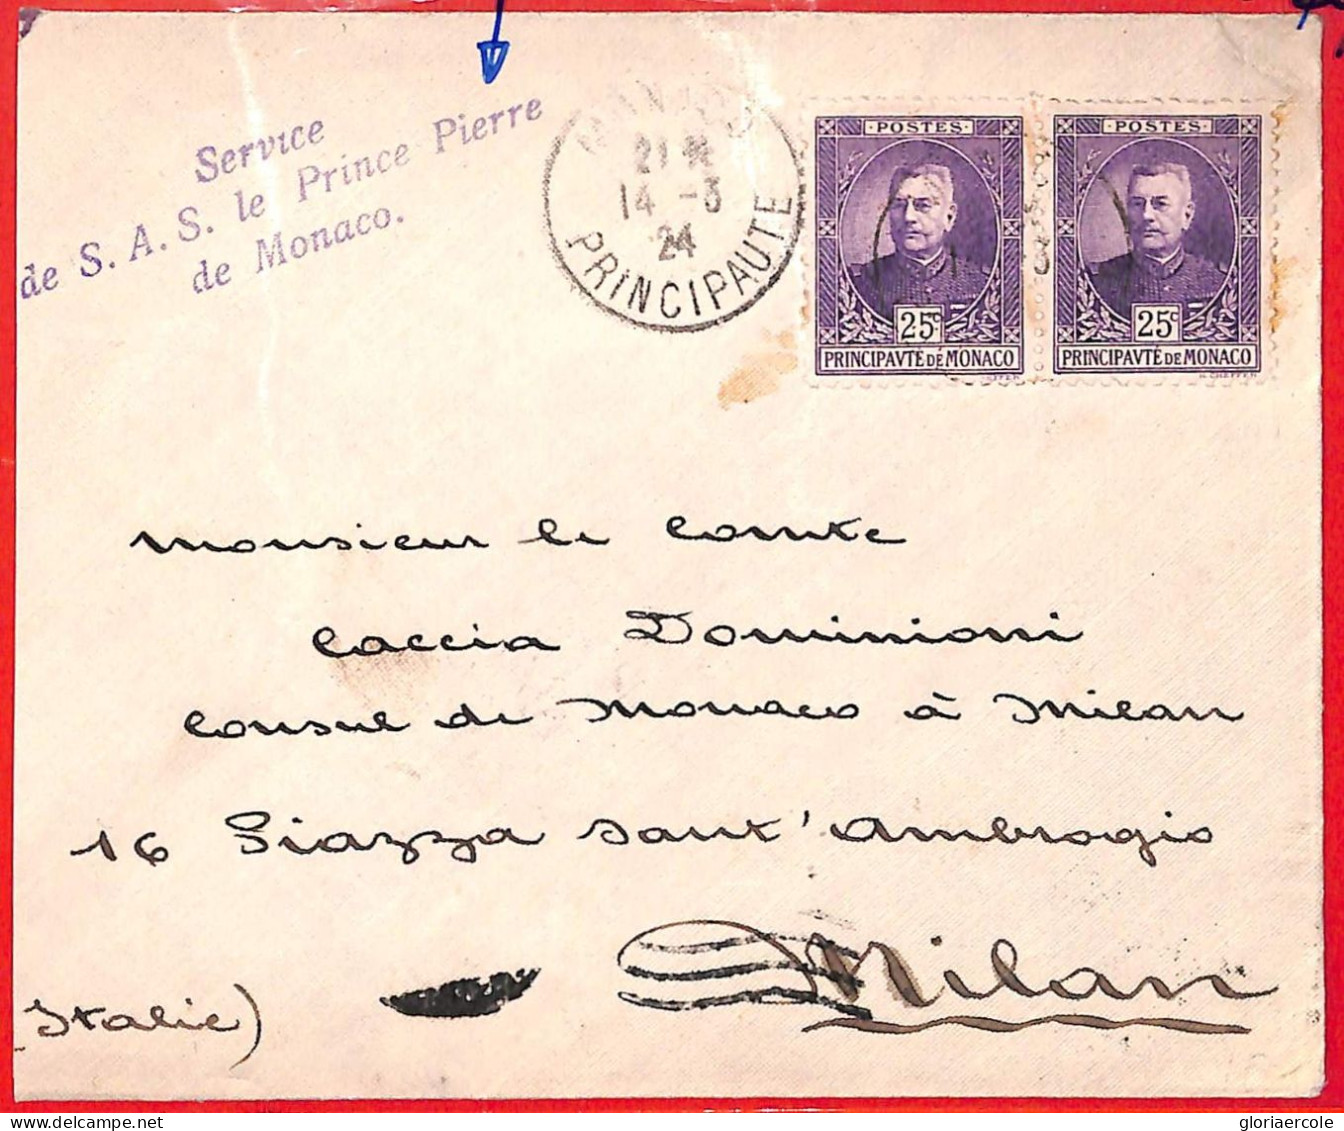 Service
de S. A. S. le Prince Pierre
de Monaco.
MONACO
21
14 -3
24
PRINCIPAUTE
·POSTES·
25c
PRINCIPAVTÉ DE MONACO
·POSTES·
25c
PRINCIPAVTÉ DE MONACO
Monsieur le Comte
Caccia Dominioni
Consul de Monaco à Milan
16 Piazza Sant'Ambrogio
Milan
Italie)
gloriaercole